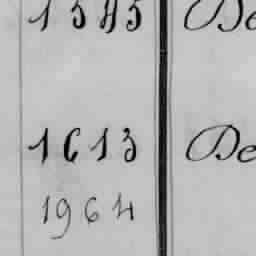 1585 De
1613 De
1964